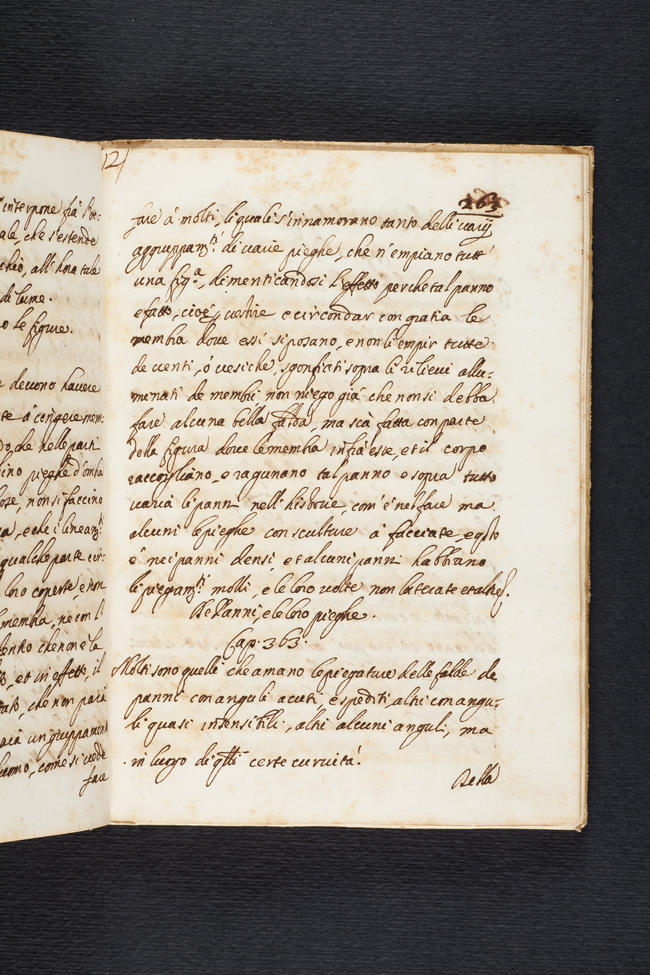 interpone frà
ale, che s'estende
chio, all'hora tale
di lume.
o le figure.
devono havere
te à cingere mem:
che nelle parti
ino pieghe d'omb
non si faccino
qualche parte
loro coperte, e non
membra, ne con
dentro che non è la
et in effetto, il
che non paia
un gruppament
uomo, come si vede
fare
121
263
fare à molti, li quali s'innamorano tanto delli varij
aggruppam.ti di varie pieghe, che n'empiano tutt'
una fig.a, dimenticandosi l'effetto perche tal panno
e fatto, cioè, vestire e circondar con gratia le
membra dove essi si posano, e non l'empir tutte
de venti, ò vesiche, sgonfiati sopra li rilievi allu:
menati de membri non niego già che non si debba
fare alcuna bella falda, ma sia fatta con parte
della figura dove le membra infra esse, et il corpo
raccogliano, e ragunano tal panno e sopra tutto
varia li panni nell'historie, com'è nel fare ma
alcuni le pieghe con sculture à facciate, e q.sto
è nei panni densi, et alcuni panni habbano
li piegam.ti molli, e le loro volte non laterate
De Panni, e le loro pieghe.
Cap. 363.
Molti sono quelli che amano le piegature delle falde de
panni con anguli acuti, e spediti, altri con angu:
li quasi insensibili, altri alcuni anguli, ma
in luogo di q.lli certe curvità.
Della